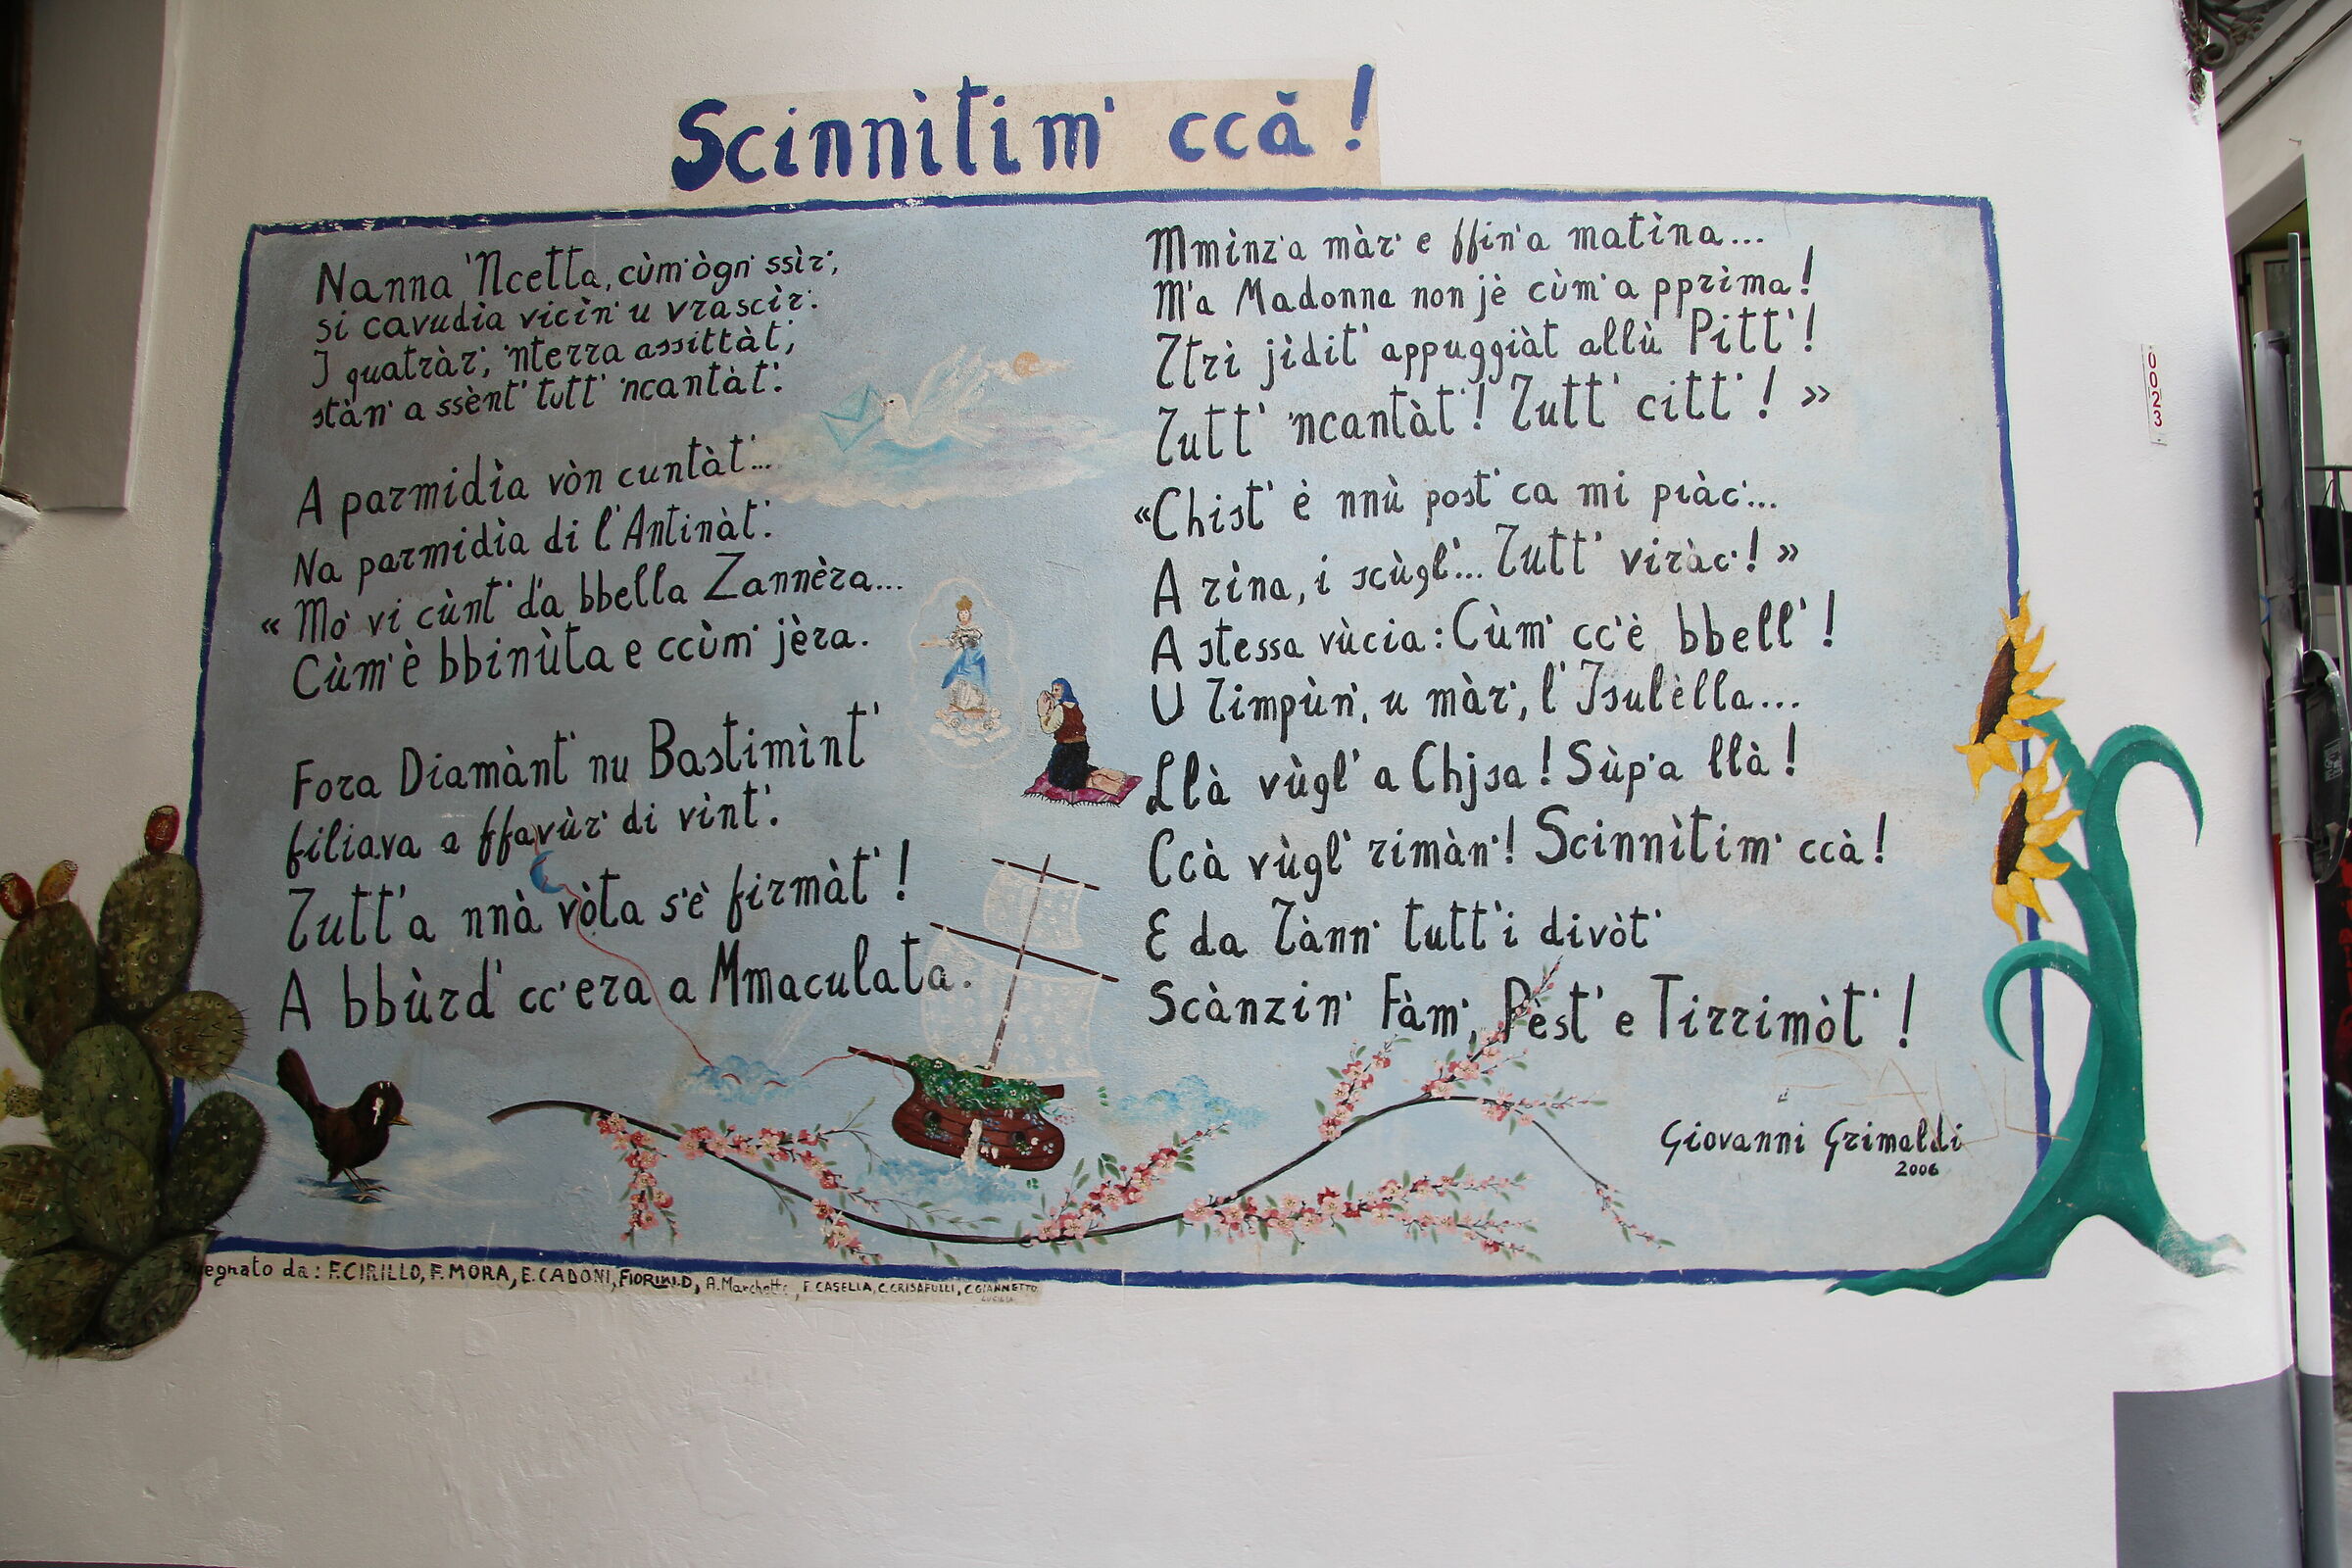 Scinnìtim' ccă!
Nanna 'Ncetta, cùm'ògn' ssìr',
si cavudìa vicìn' u vrascìr'.
I quatràr', 'nterra assittàt',
stàn' a ssènt' tutt' 'ncantàt'.
A parmidìa vòn cuntàt'...
Na parmidìa di l'Antinàt'.
« Mò vi cùnt' d'a bbella Zannèra...
Cùm'è bbinùta e ccùm' jèra.
Fora Diamànt' nu Bastimìnt'
filiava a ffavùr' di vìnt'.
Tutt'a nnà vòta s'è firmàt'!
A bbùrd' cc'era a Mmaculata.
Mmìnz'a màr' e ffin'a matìna...
M'a Madonna non jè cùm'a pprima!
Ttrì jìdit' appuggiàt allù Pitt'!
Tutt' 'ncantàt'! Tutt' citt'! »
«Chist' è nnù post' ca mi piàc'...
A rìna, i scùgl'... Tutt' viràc'! »
A stessa vùcia: Cùm' cc'è bbell'!
U Timpùn', u màr', l'Isulèlla...
Llà vùgl' a Chjsa! Sùp'a llà!
Ccà vùgl' rimàn'! Scinnìtim' ccà!
E da Tànn' tutt'i divòt'
Scànzin' Fàm', Pèst' e Tirrimòt'!
Giovanni Grimaldi
2006
egnato da: F.CIRILLO, F.MORA, E.CADONI, FIORINI.D, A.Marchetti, F.CASELLA, C.CRISAFULLI, C.GIANNETTO
0023